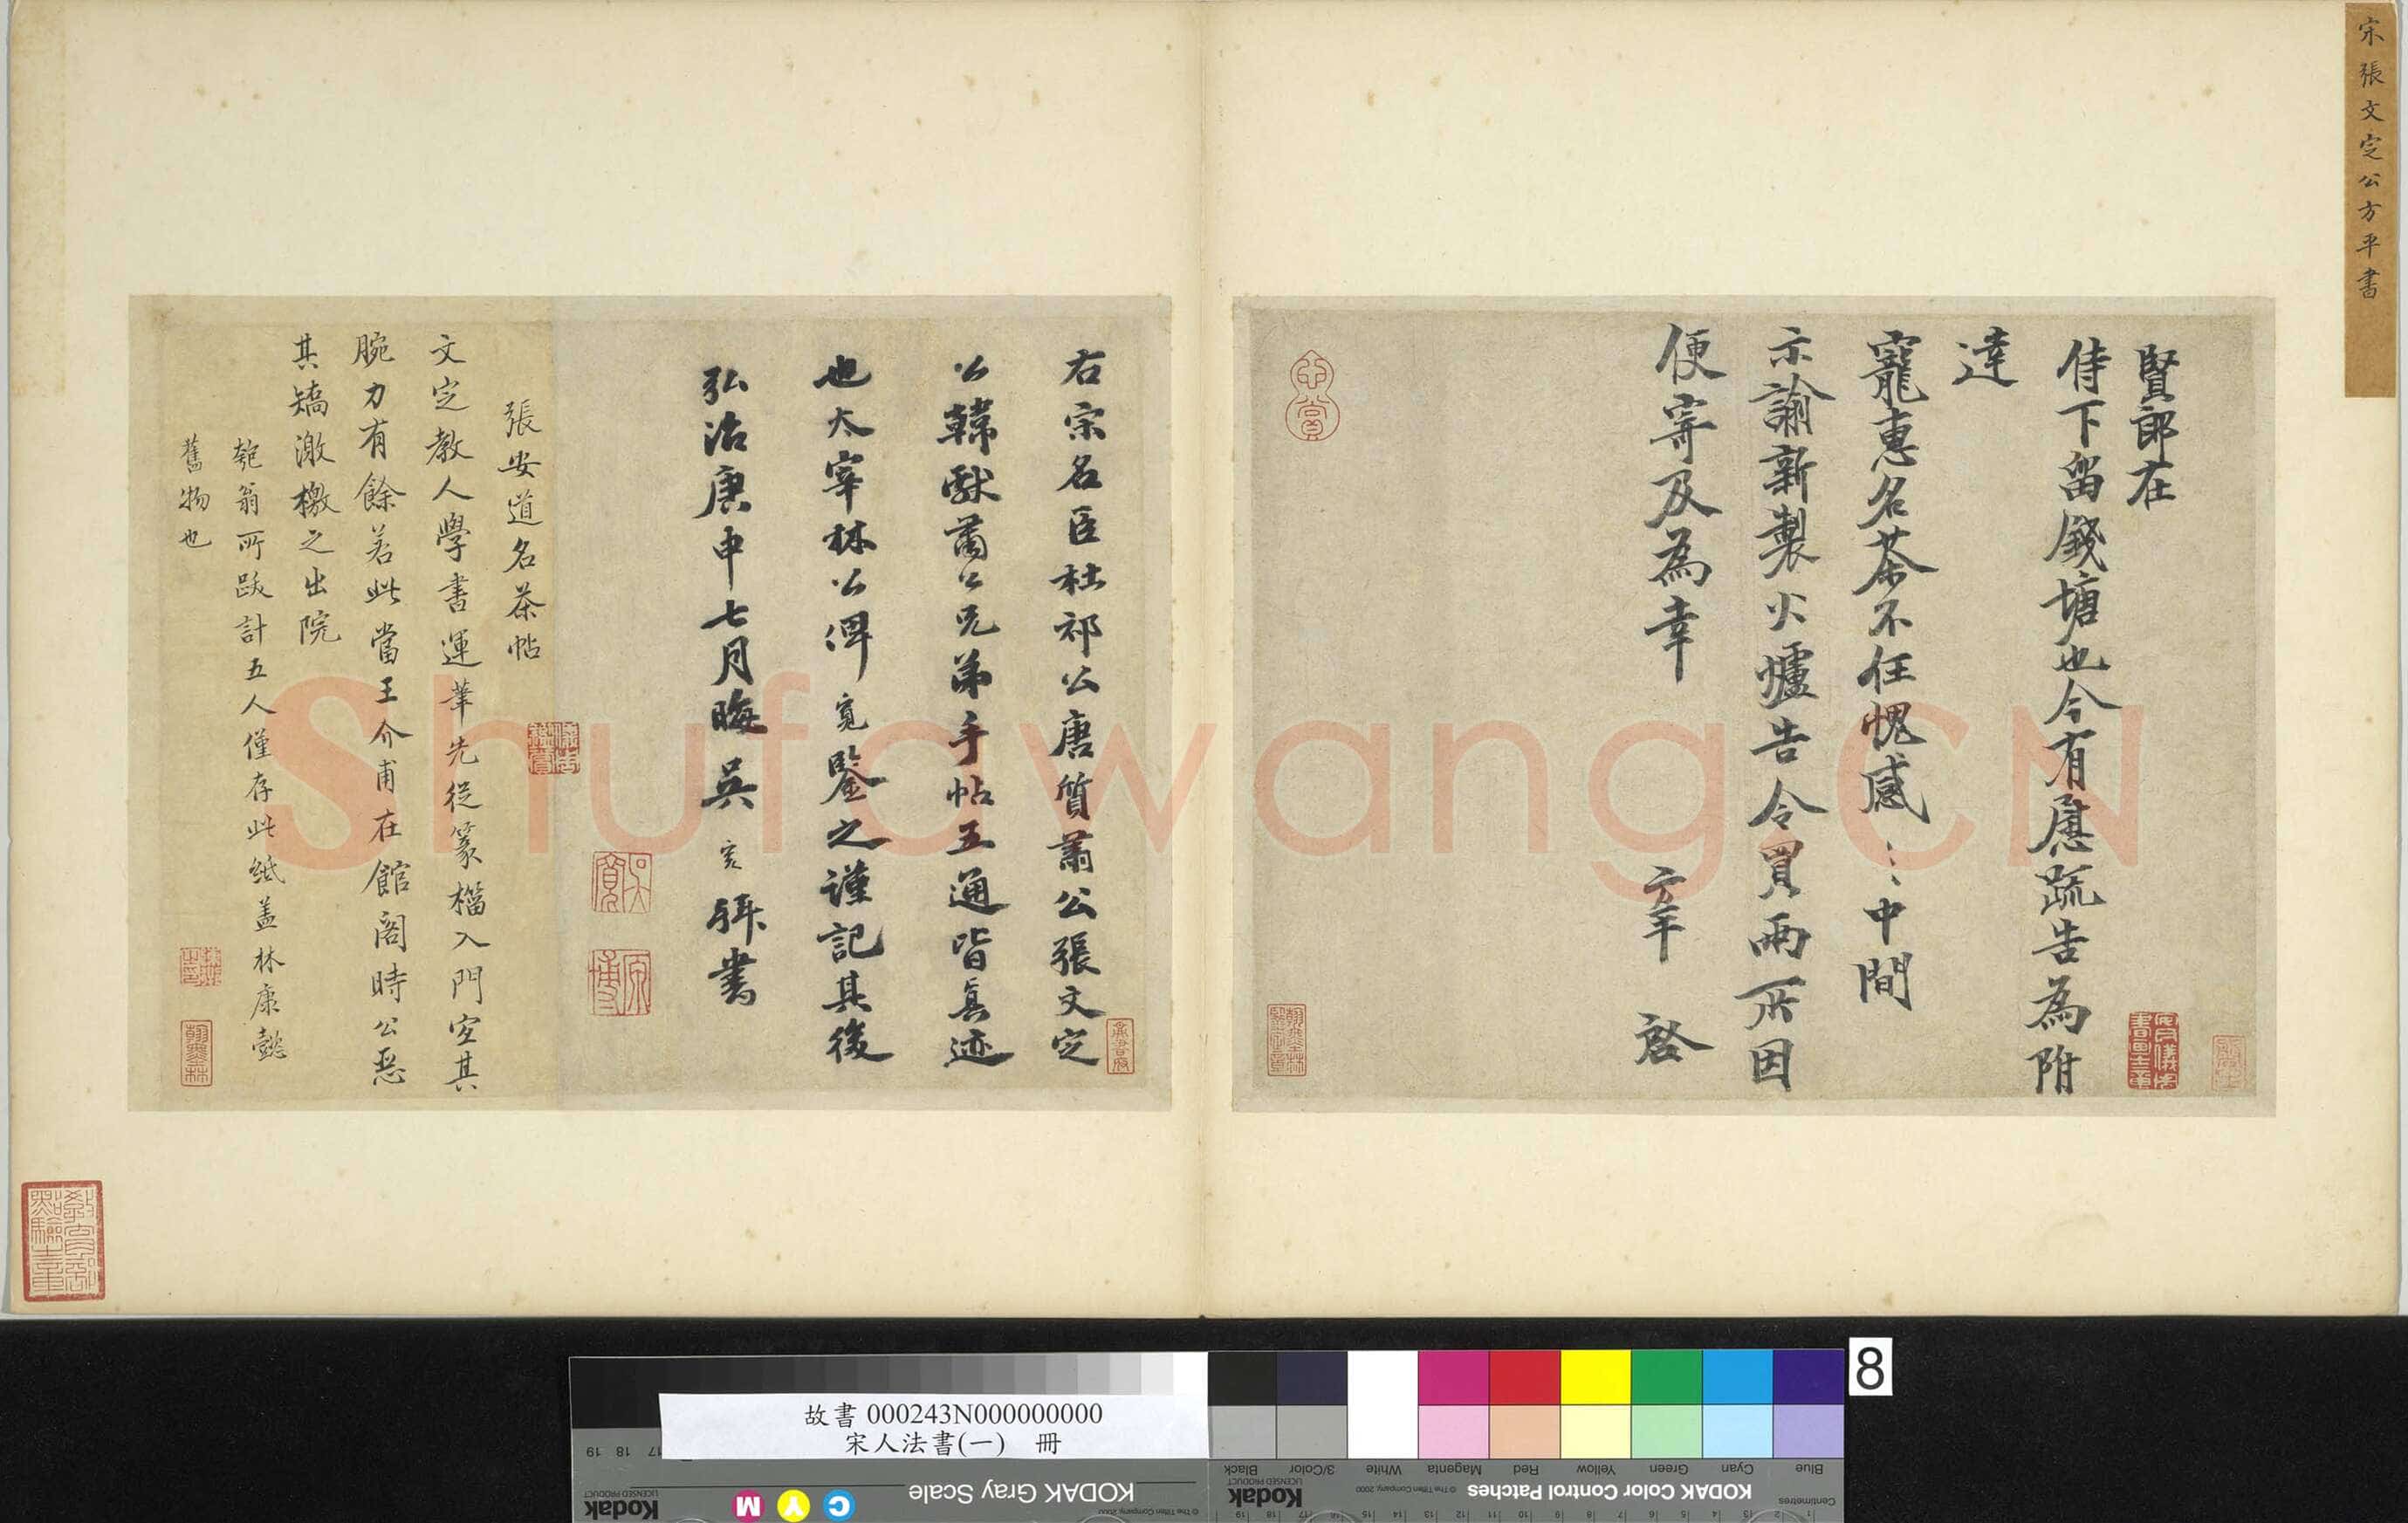 宋張文定公方平書
賢郎在
侍下留錢塘也今有慰疏告為附
達
寵惠名茶不任愧感〻〻中間
示諭新製火爐告令買兩所因
便寄及為幸 方平 啓
右宗名臣杜祁公唐質肅公張文定
公韓獻肅公兄弟手帖五通皆真迹
也太宰林公俾寬鑒之謹記其後
弘治庚申七月晦吳寬拜書
張安道名茶帖
文定教人學書運筆先從篆榴入門宜其
腕力有餘若此當王介甫在館閣時公惡
其矯激檄之出院
匏翁所跋計五人僅存此紙蓋林康懿
舊物也
Shufawang.CN
故書 000243N000000000
宋人法書(一) 冊
8
KODAK Gray Scale
Kodak
LICENSED PRODUCT
C Y M
© The Tiffen Company, 2000
KODAK Color Control Patches
© The Tiffen Company, 2000
Kodak
LICENSED PRODUCT
Blue Cyan Green Yellow Red Magenta White 3/Color Black
Centimetres